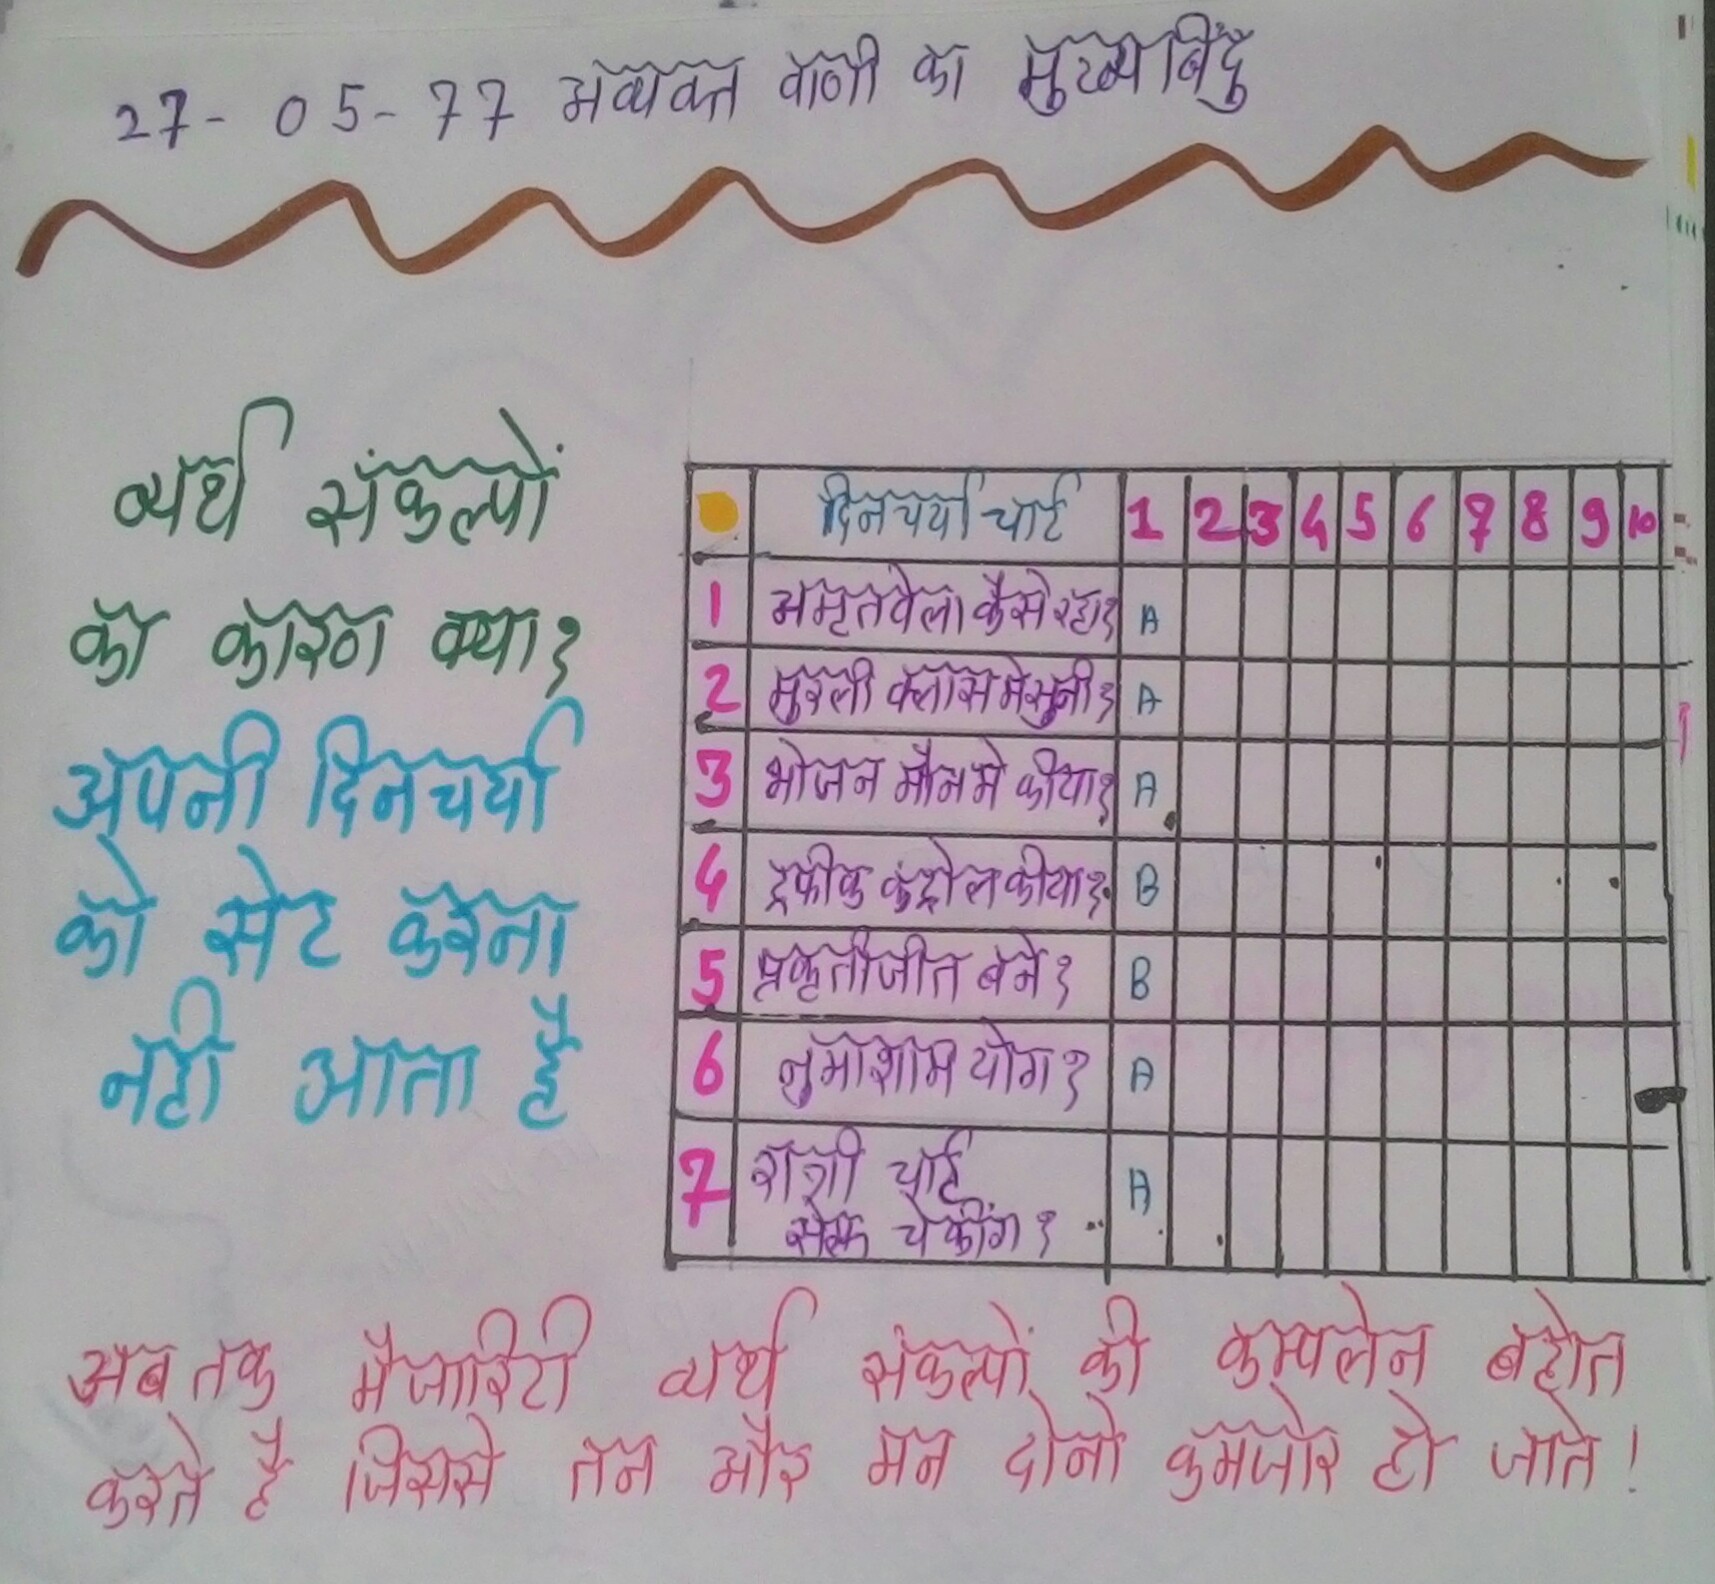 27- 05-77 अव्यक्त वाणी का मुख्य बिंदु
व्यर्थ संकल्पों
का कारण क्या?
अपनी दिनचर्या
को सेट करना
नही आता है
दिनचर्या चार्ट 1 2 3 4 5 6 7 8 9 10
1 अमृतवेला कैसे रहा? A
2 मुरली क्लास मे सुनी? A
3 भोजन मौन मे कीया? A
4 ट्रफीक कंट्रोल कीया? B
5 प्रकृतीजीत बने? B
6 नुमाशाम योग? A
7 रात्री चार्ट A
सेल्फ चेकींग?
अब तक मैजारिटी व्यर्थ संकल्पों की कम्पलेन बहोत
करते है जिससे तन और मन दोनो कमजोर हो जाते!